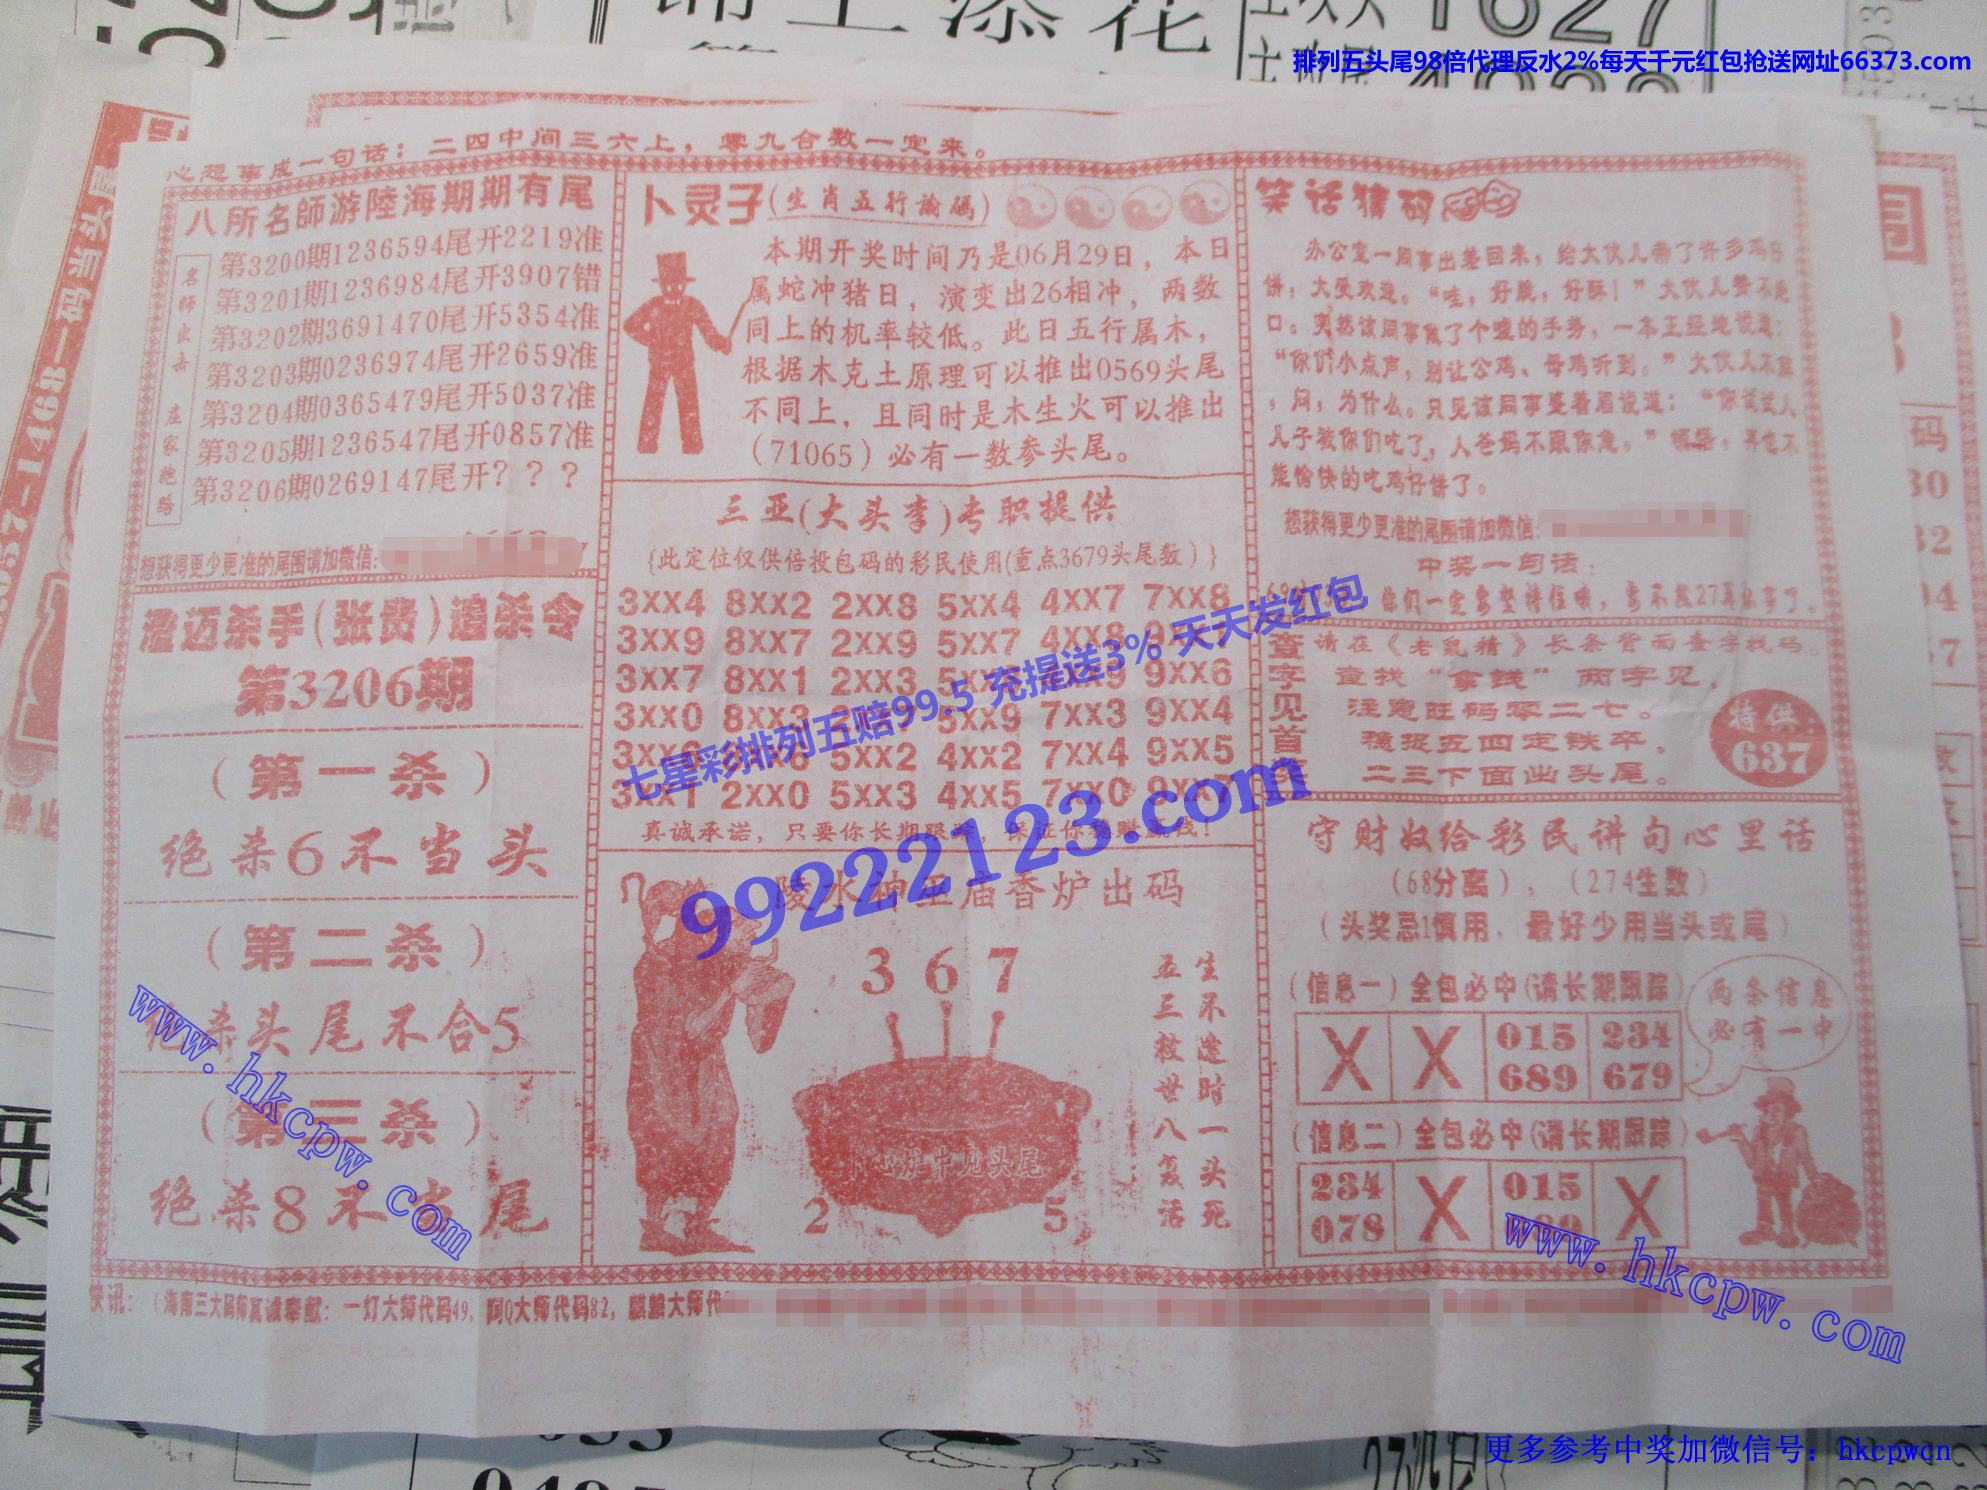 排列五头尾98倍代理反水2%每天千元红包抢送网址66373.com
心想事成一句话：二四中间三六上，零九合数一定来。
八所名師游陸海期期有尾
名師出击 庄家跑路
第3200期1236594尾开2219准
第3201期1236984尾开3907错
第3202期3691470尾开5354准
第3203期0236974尾开2659准
第3204期0365479尾开5037准
第3205期1236547尾开0857准
第3206期0269147尾开？？？
想获得更少更准的尾围请加微信:
澄迈杀手(张贵)追杀令
第3206期
(第一杀)
绝杀6不当头
(第二杀)
绝杀头尾不合5
(第三杀)
绝杀8不当尾
卜灵子(生肖五行論碼)
本期开奖时间乃是06月29日，本日
属蛇冲猪日，演变出26相冲，两数
同上的机率较低。此日五行属木，
根据木克土原理可以推出0569头尾
不同上，且同时是木生火可以推出
（71065）必有一数参头尾。
三亚(大头李)专职提供
{此定位仅供倍投包码的彩民使用(重点3679头尾数）}
3XX4 8XX2 2XX8 5XX4 4XX7 7XX8
3XX9 8XX7 2XX9 5XX7 4XX8
3XX7 8XX1 2XX3 9XX6
3XX0 8XX3 5XX9 7XX3 9XX4
5XX2 4XX2 7XX4 9XX5
3XX1 2XX0 5XX3 4XX5 7XX0 9XX7
真诚承诺，只要你长期跟踪，保证你稳赚赢钱！
七星彩排列五赔99.5 充提送3% 天天发红包
99222123.com
陵水神巫庙香炉出码
3 6 7
生不逢时一头死
五三救世八复活
卜心炉牛见头尾
2 5
笑话猜码
办公室一同事出差回来，给大伙儿带了许多鸡仔
饼，大受欢迎。“哇，好脆，好酥！”大伙儿赞不绝
口。突然该同事做了个嘘的手势，一本正经地说道：
“你们小点声，别让公鸡、母鸡听到。”大伙儿不解
，问，为什么。只见该同事晃着眉说道：“你说说人
儿子被你们吃了，人爸妈不跟你急。” 再也不
能愉快的吃鸡仔饼了。
想获得更少更准的尾围请加微信:
中奖一句话：
你们一定要坚持住哦，
查字见首尾
请在《老鼠精》长条背面查字找码。
查找“拿钱”两字见，
注意旺码零二七。
稳捉五四定铁卒，
二三下面出头尾。
特供：
637
守财奴给彩民讲句心里话
（68分离），（274生数）
（头奖忌1慎用，最好少用当头或尾）
（信息一）全包必中(请长期跟踪)
X X 015 234
689 679
两条信息
必有一中
（信息二）全包必中(请长期跟踪)
234 X 015 X
078
快讯：（海南三大码师真诚奉献：一灯大师代码49，阿Q大师代码82，麒麟大师代
www.hkcpw.com
www.hkcpw.com
更多参考中奖加微信号：hkcpwcn